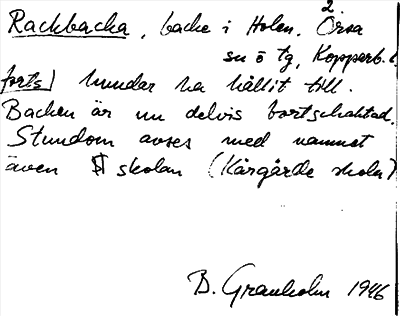 Rackbacka, backe i Holen, Orsa
2
su ö tg, Kopparb. l.
forts) hundar ha hållit till.
Backen är nu delvis bortschaktad.
Stundom avses med namnet
även skolan (Kårgärde skola)
B. Granholm 1946